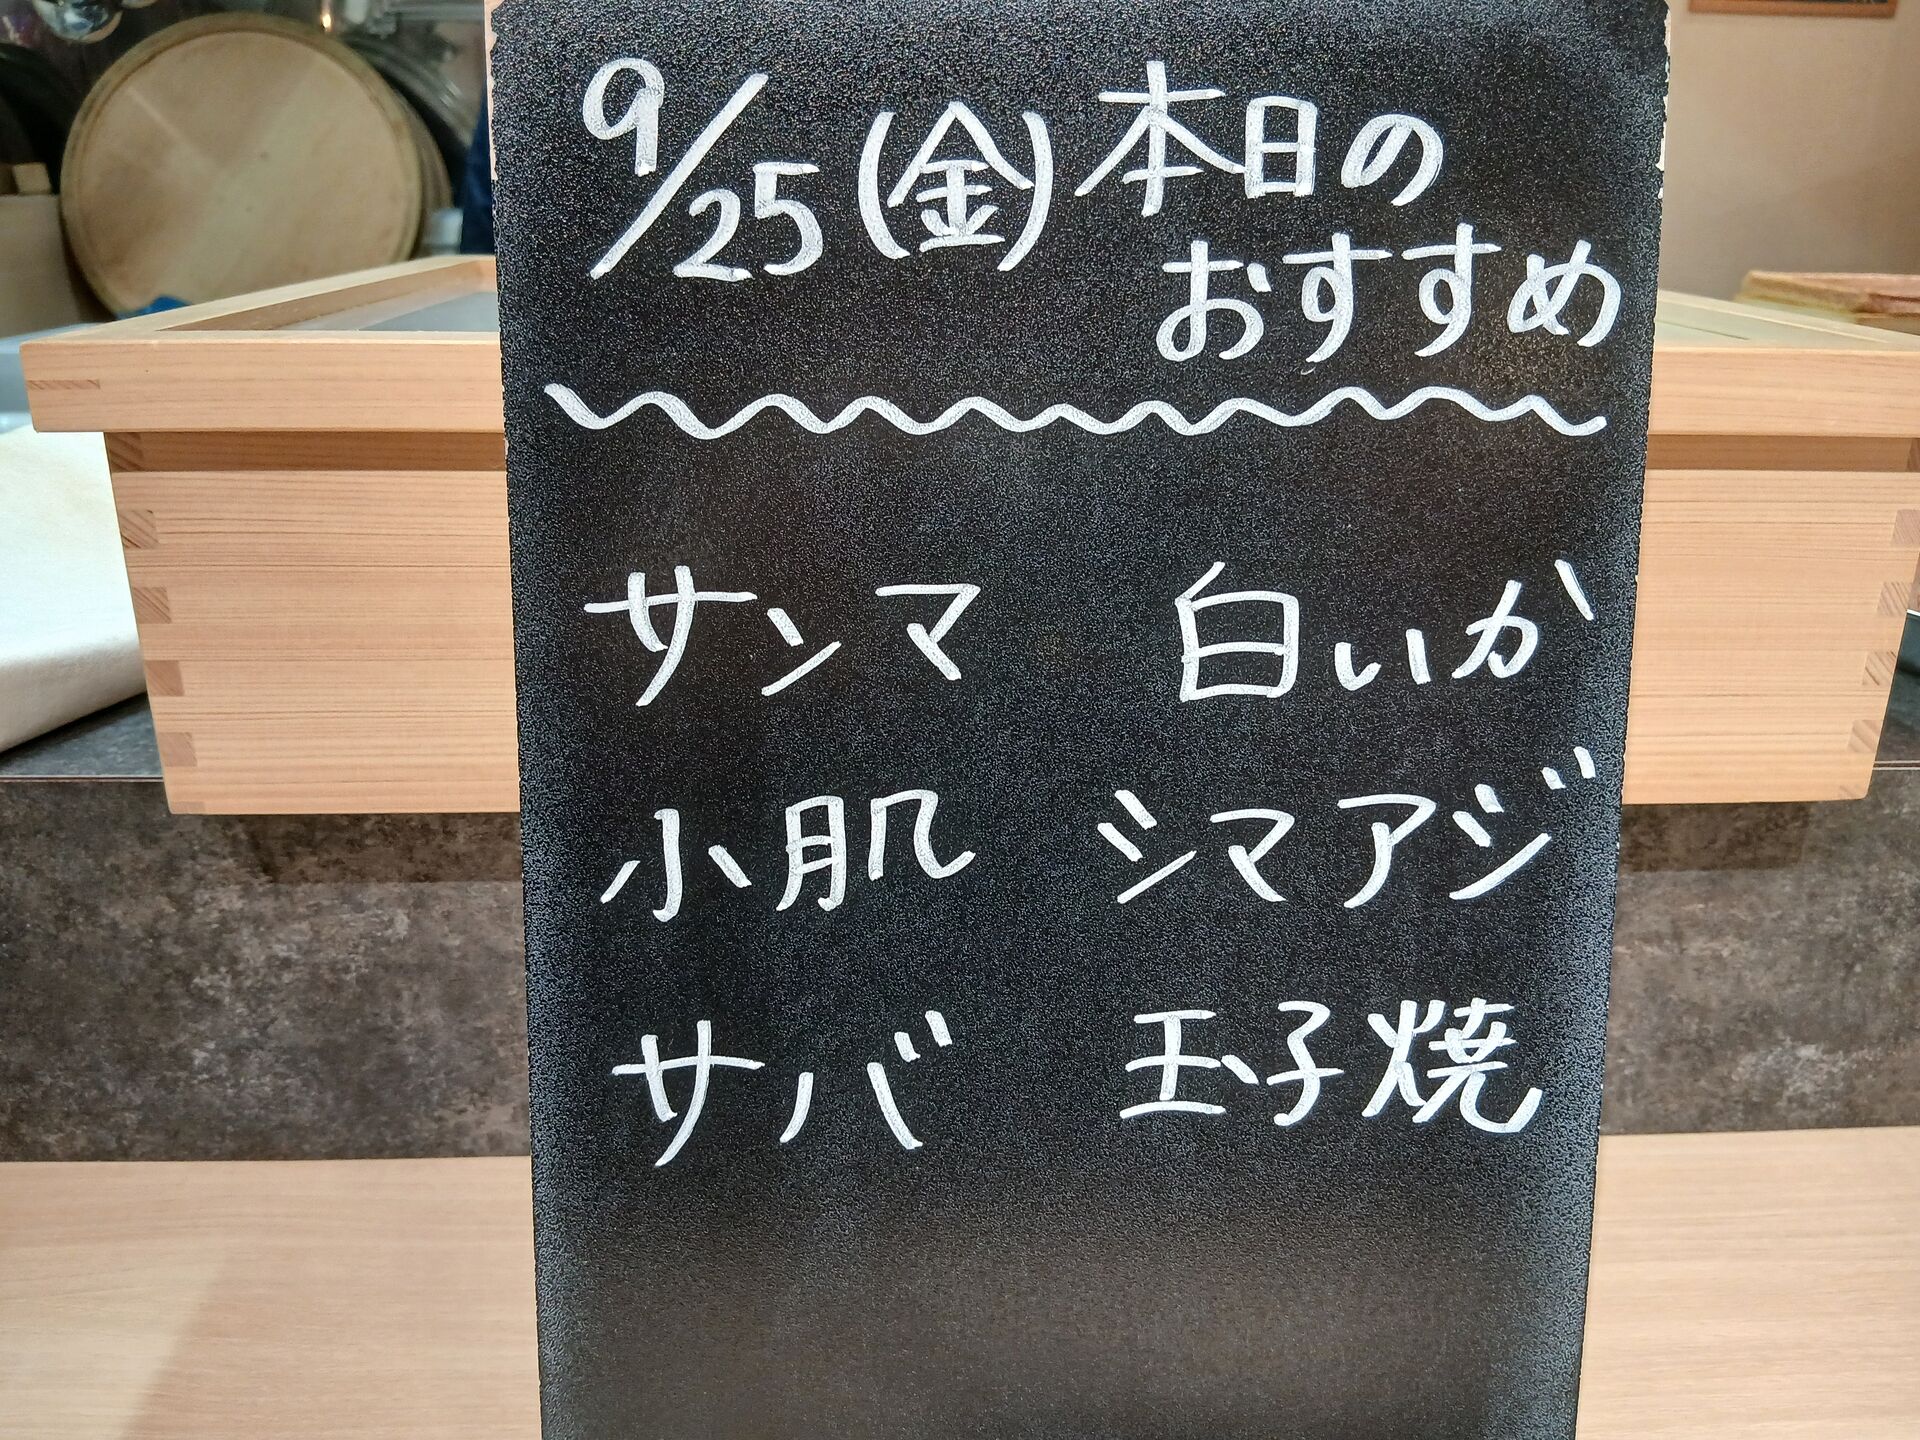 9/25(金)本日の
おすすめ
サンマ 白いか
小肌 シマアジ
サバ 玉子焼